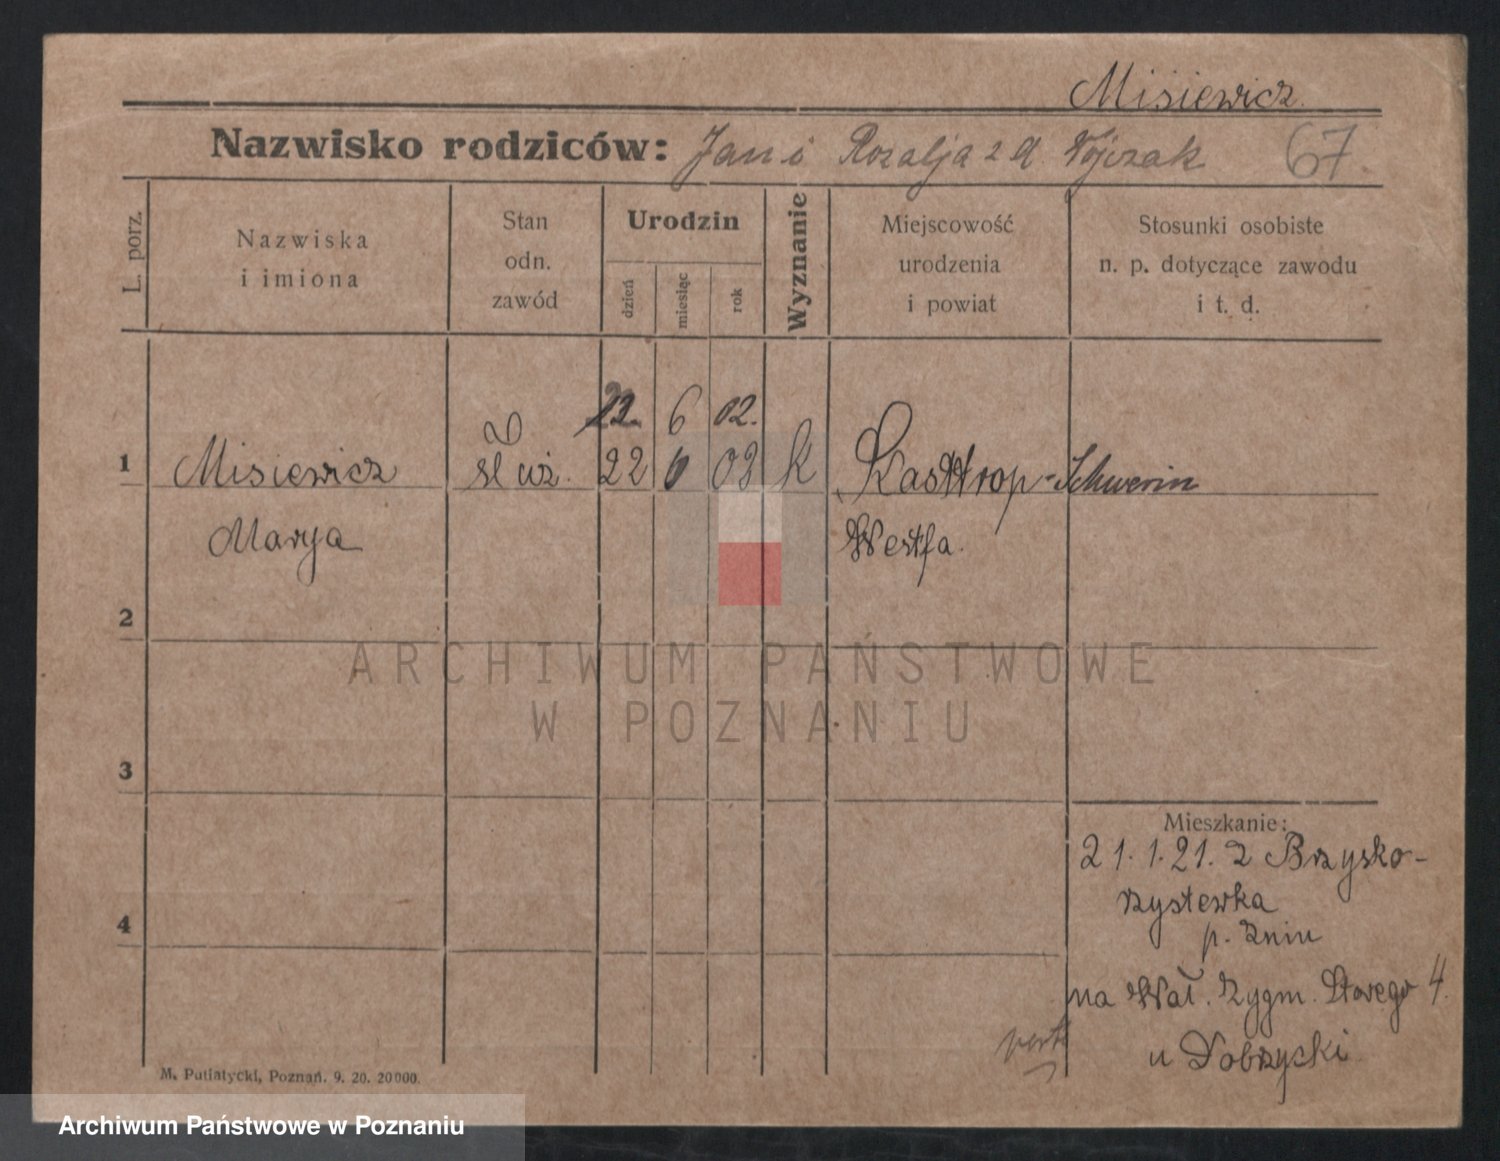 Misiewicz
Nazwisko rodziców: Jan i Rozalja z d. Wójczak 67
L. porz.
Nazwiska
i imiona
Stan
odn.
zawód
Urodzin
dzień
miesiąc
rok
Wyznanie
Miejscowość
urodzenia
i powiat
Stosunki osobiste
n. p. dotyczące zawodu
i t. d.
22. 6 02.
1 Misiewicz służ. 22 6 02 k Kasttrop-Schwerin
Marya Westfa.
2
ARCHIWUM PAŃSTWOWE
W POZNANIU
3
Mieszkanie:
21.1.21. z Brzysko-
rzystewka
4
p. Żnin
na Wał. Zygm. Starego 4.
u Dobrzycki
M. Putiatycki, Poznań. 9. 20. 20000.
Archiwum Państwowe w Poznaniu